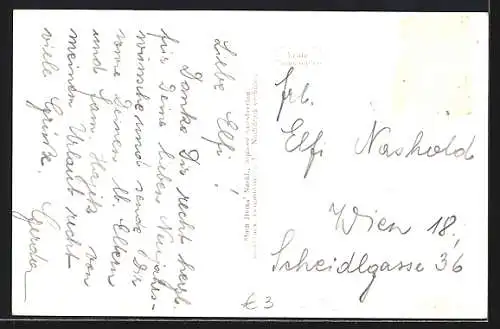 Liebe Elfi!
Danke Dir recht herzl.
für Deine lieben Neujahrs-
wünsche und sende Dir
sowie Deinen lb. Eltern
und Fam. Hajek von
meinem Urlaub recht
viele Grüße. Gerda
Frl.
Elfi Naskold
Wien 18.,
Scheidlgasse 36
€ 3